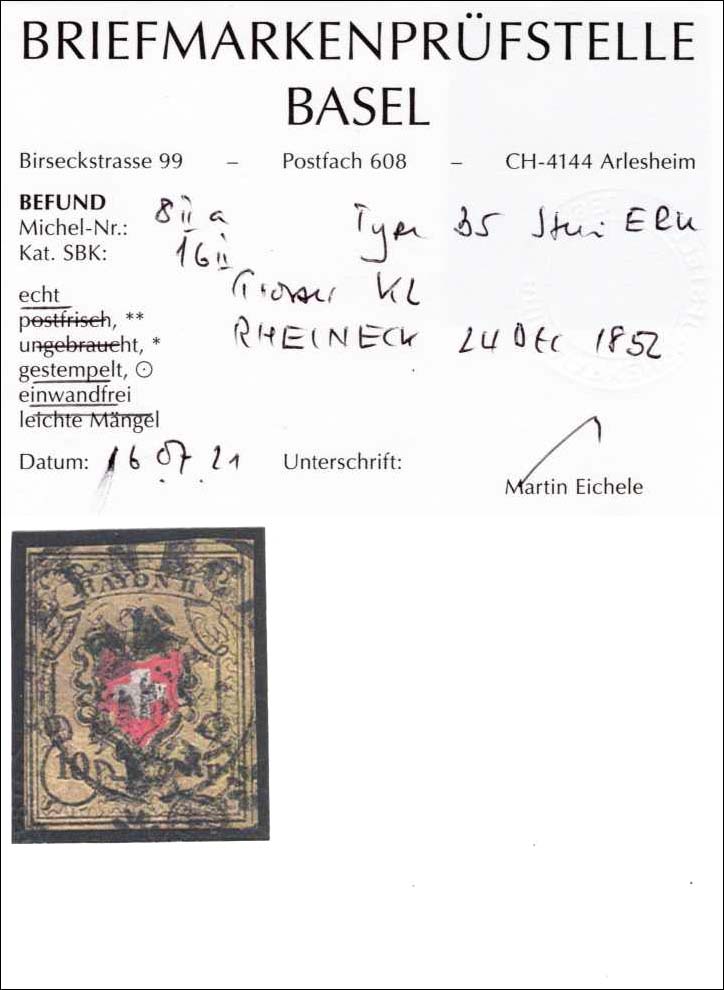 BRIEFMARKENPRÜFSTELLE
BASEL
Birseckstrasse 99 – Postfach 608 – CH-4144 Arlesheim
BEFUND
Michel-Nr.: 8 II a Type 35 Stein
Kat. SBK: 16 II
echt Grosser KZ
postfrisch, ** RHEINECK 24 Dec 1852
ungebraucht, *
gestempelt, ⊙
einwandfrei
leichte Mängel
Datum: 16.07.21 Unterschrift:
Martin Eichele
RAYON II.
10